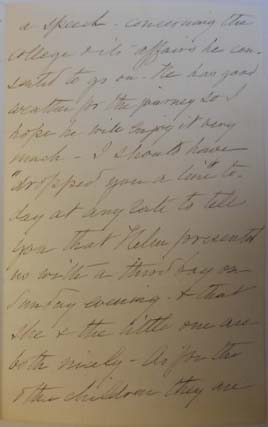 a speech - concerning the
college & its affairs he con-
sented to go on - He has good
weather for the journey so I
hope he will enjoy it very
much - I should have
"dropped you a line" to-
day at any rate to tell
you that Helen presented
us with a third boy on
Sunday evening - & that
she & the little one are
both nicely - As for the
other children they are